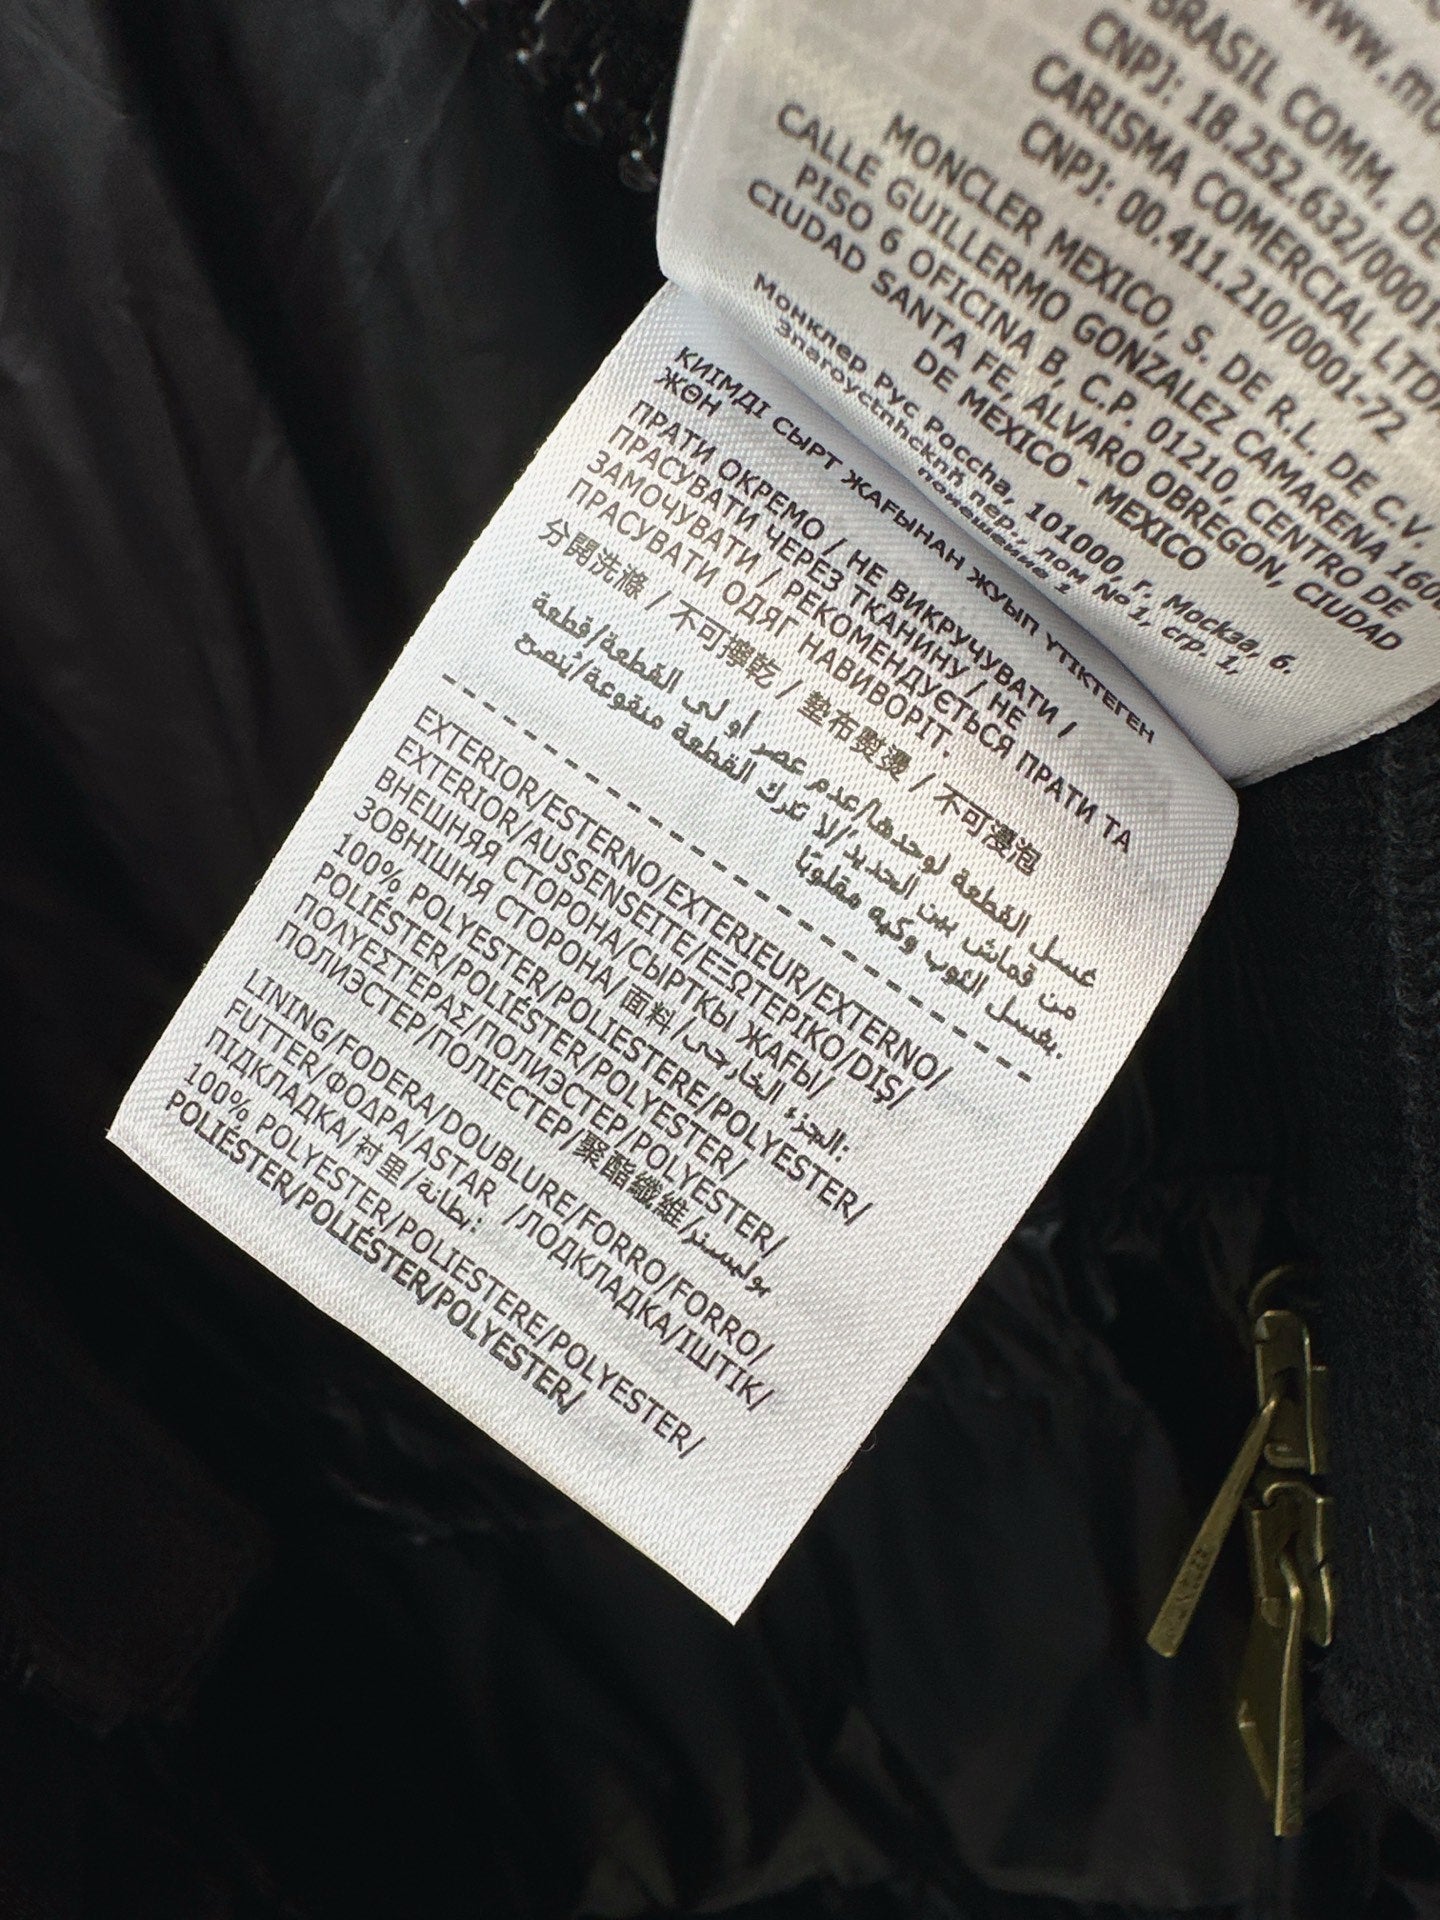 www.mo
BRASIL COMM. DE
CNPJ: 18.252.632/0001-
CARISMA COMERCIAL LTDA
CNPJ: 00.411.210/0001-72
MONCLER MEXICO, S. DE R.L. DE C.V.
CALLE GUILLERMO GONZALEZ CAMARENA 1600
PISO 6 OFICINA B, C.P. 01210, CENTRO DE
CIUDAD SANTA FE, ALVARO OBREGON, CIUDAD
DE MEXICO - MEXICO
Монклер Рус Россnа, 101000, г. Москва, б.
Златоустпнскпй пер., дом №1, стр. 1,
помещение 1
КИІМДІ СЫРТ ЖАҒЫНАН ЖУЫП ҮТІКТЕГЕН
ЖӨН
ПРАТИ ОКРЕМО / НЕ ВИКРУЧУВАТИ /
ПРАСУВАТИ ЧЕРЕЗ ТКАНИНУ / НЕ
ЗАМОЧУВАТИ / РЕКОМЕНДУЄТЬСЯ ПРАТИ ТА
ПРАСУВАТИ ОДЯГ НАВИВОРІТ.
分開洗滌 / 不可擰乾 / 墊布熨燙 / 不可浸泡
غسل القطعة لوحدها/عدم عصر أو لي القطعة/قطعة
من قماش بين الحديد/لا تترك القطعة منقوعة/يُنصح
بغسل الثوب وكيه مقلوبًا.
EXTERIOR/ESTERNO/EXTERIEUR/EXTERNO/
EXTERIOR/AUSSENSEITE/ΕΞΩΤΕΡΙΚΟ/DIŞ/
ВНЕШНЯЯ СТОРОНА/СЫРТКЫ ЖАҒЫ/
ЗОВНІШНЯ СТОРОНА/面料/الجزء الخارجى:
100% POLYESTER/POLIESTERE/POLYESTER/
POLIÉSTER/POLIÉSTER/POLYESTER/
ΠΟΛΥΕΣΤ'ΕΡΑΣ/ПОЛИЭСТЕР/POLYESTER/
ПОЛИЭСТЕР/ПОЛІЕСТЕР/聚酯纖維/بوليستر
LINING/FODERA/DOUBLURE/FORRO/FORRO/
FUTTER/ΦΟΔΡΑ/ASTAR /ПОДКЛАДКА/ІШТІК/
ПІДКЛАДКА/衬里/بطانة:
100% POLYESTER/POLIESTERE/POLYESTER/
POLIÉSTER/POLIÉSTER/POLYESTER/